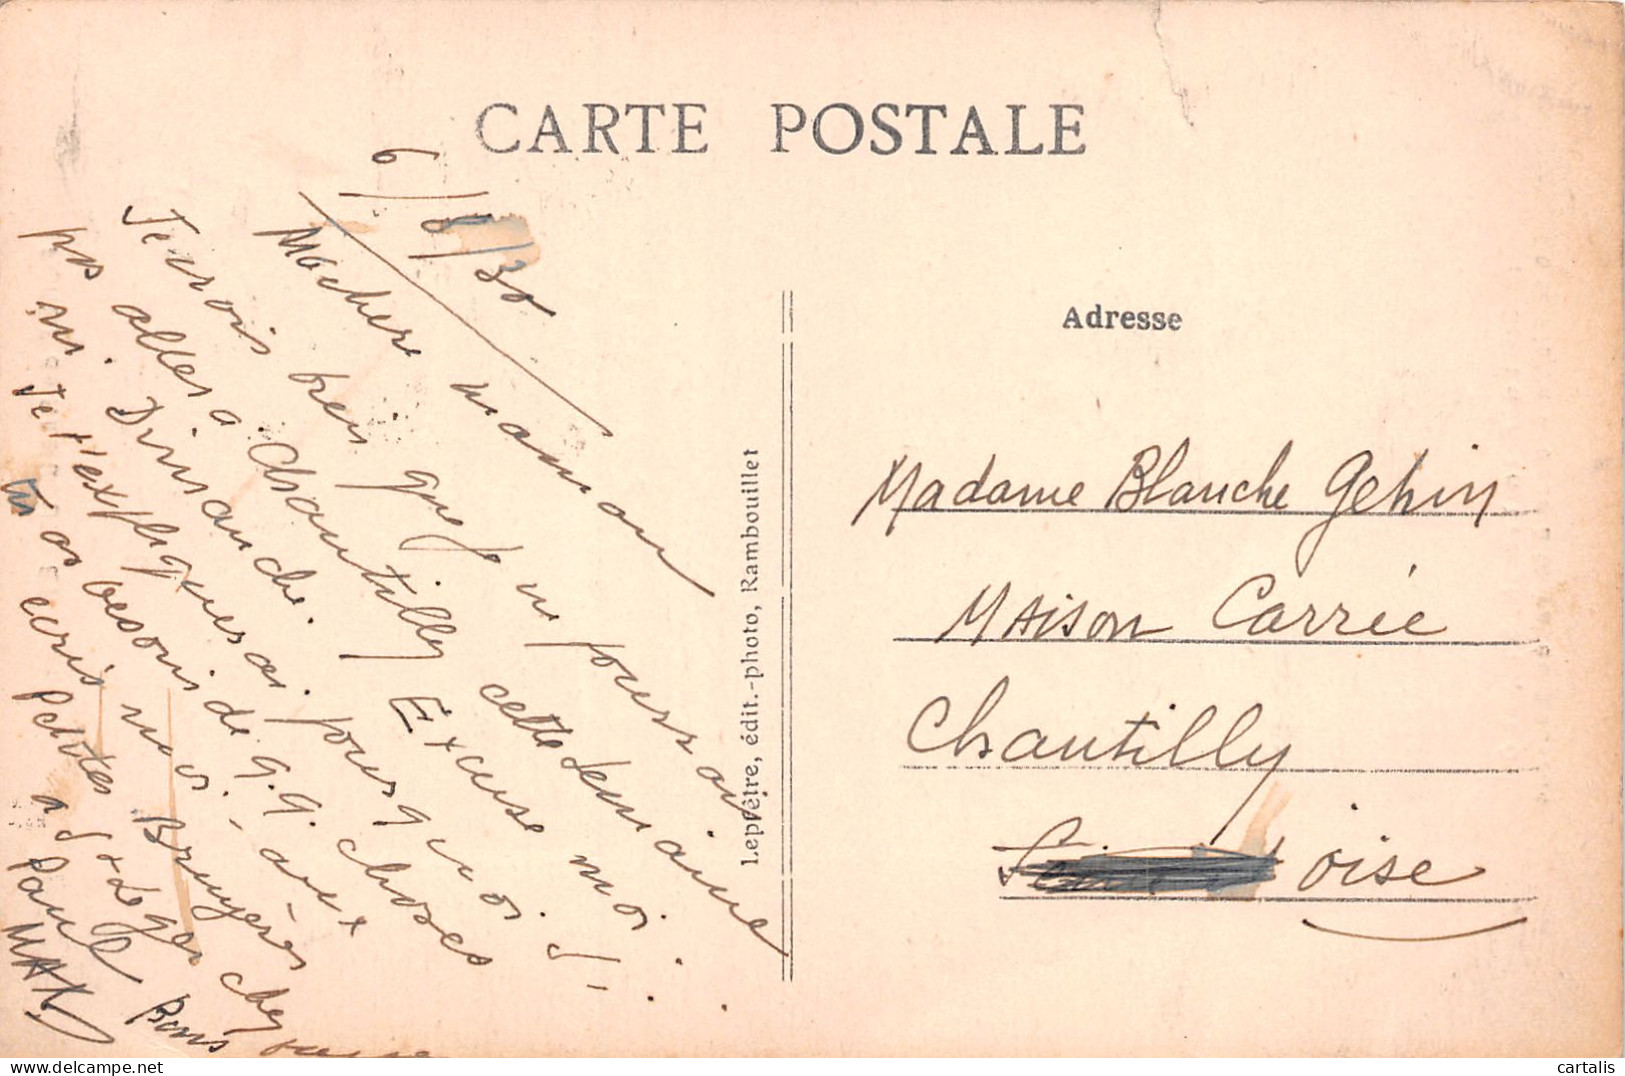 CARTE POSTALE
6/8/30
Ma chere maman
Je crois bien que je ne pourrai
pas aller a Chantilly cette semaine
ni Dimanche. Excuse moi.
Je t'expliquerai pourquoi. S-
tu as besoin de q.q. choses
ecris moi - aux Bruyères
Petites a St Léger chez
Paul Bons
MAX
Leprêtre, édit.-photo, Rambouillet
Adresse
Madame Blanche Gehin
Maison Carrée
Chantilly
oise
cartalis
delcampe.net